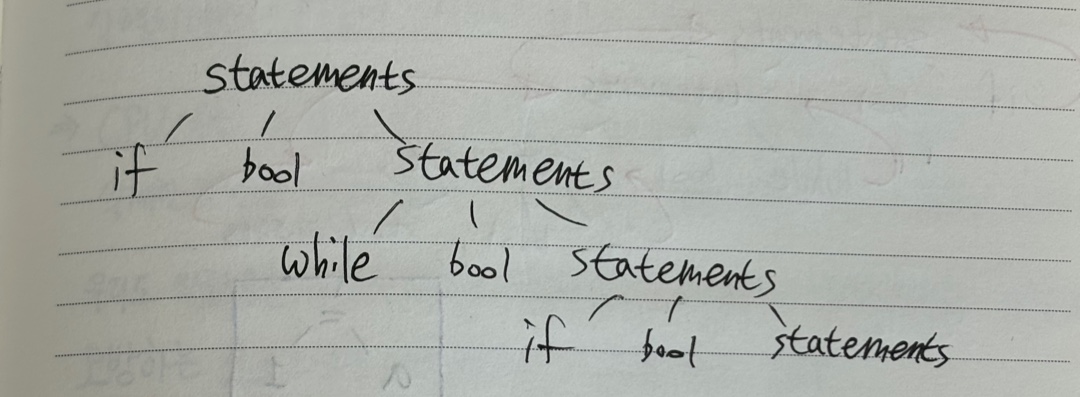 statements
if bool statements
while bool statements
if bool statements